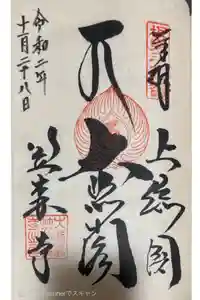 奉拝
上総国
大悲閣
笠森寺
令和二年
十一月二十八日
でスキャン